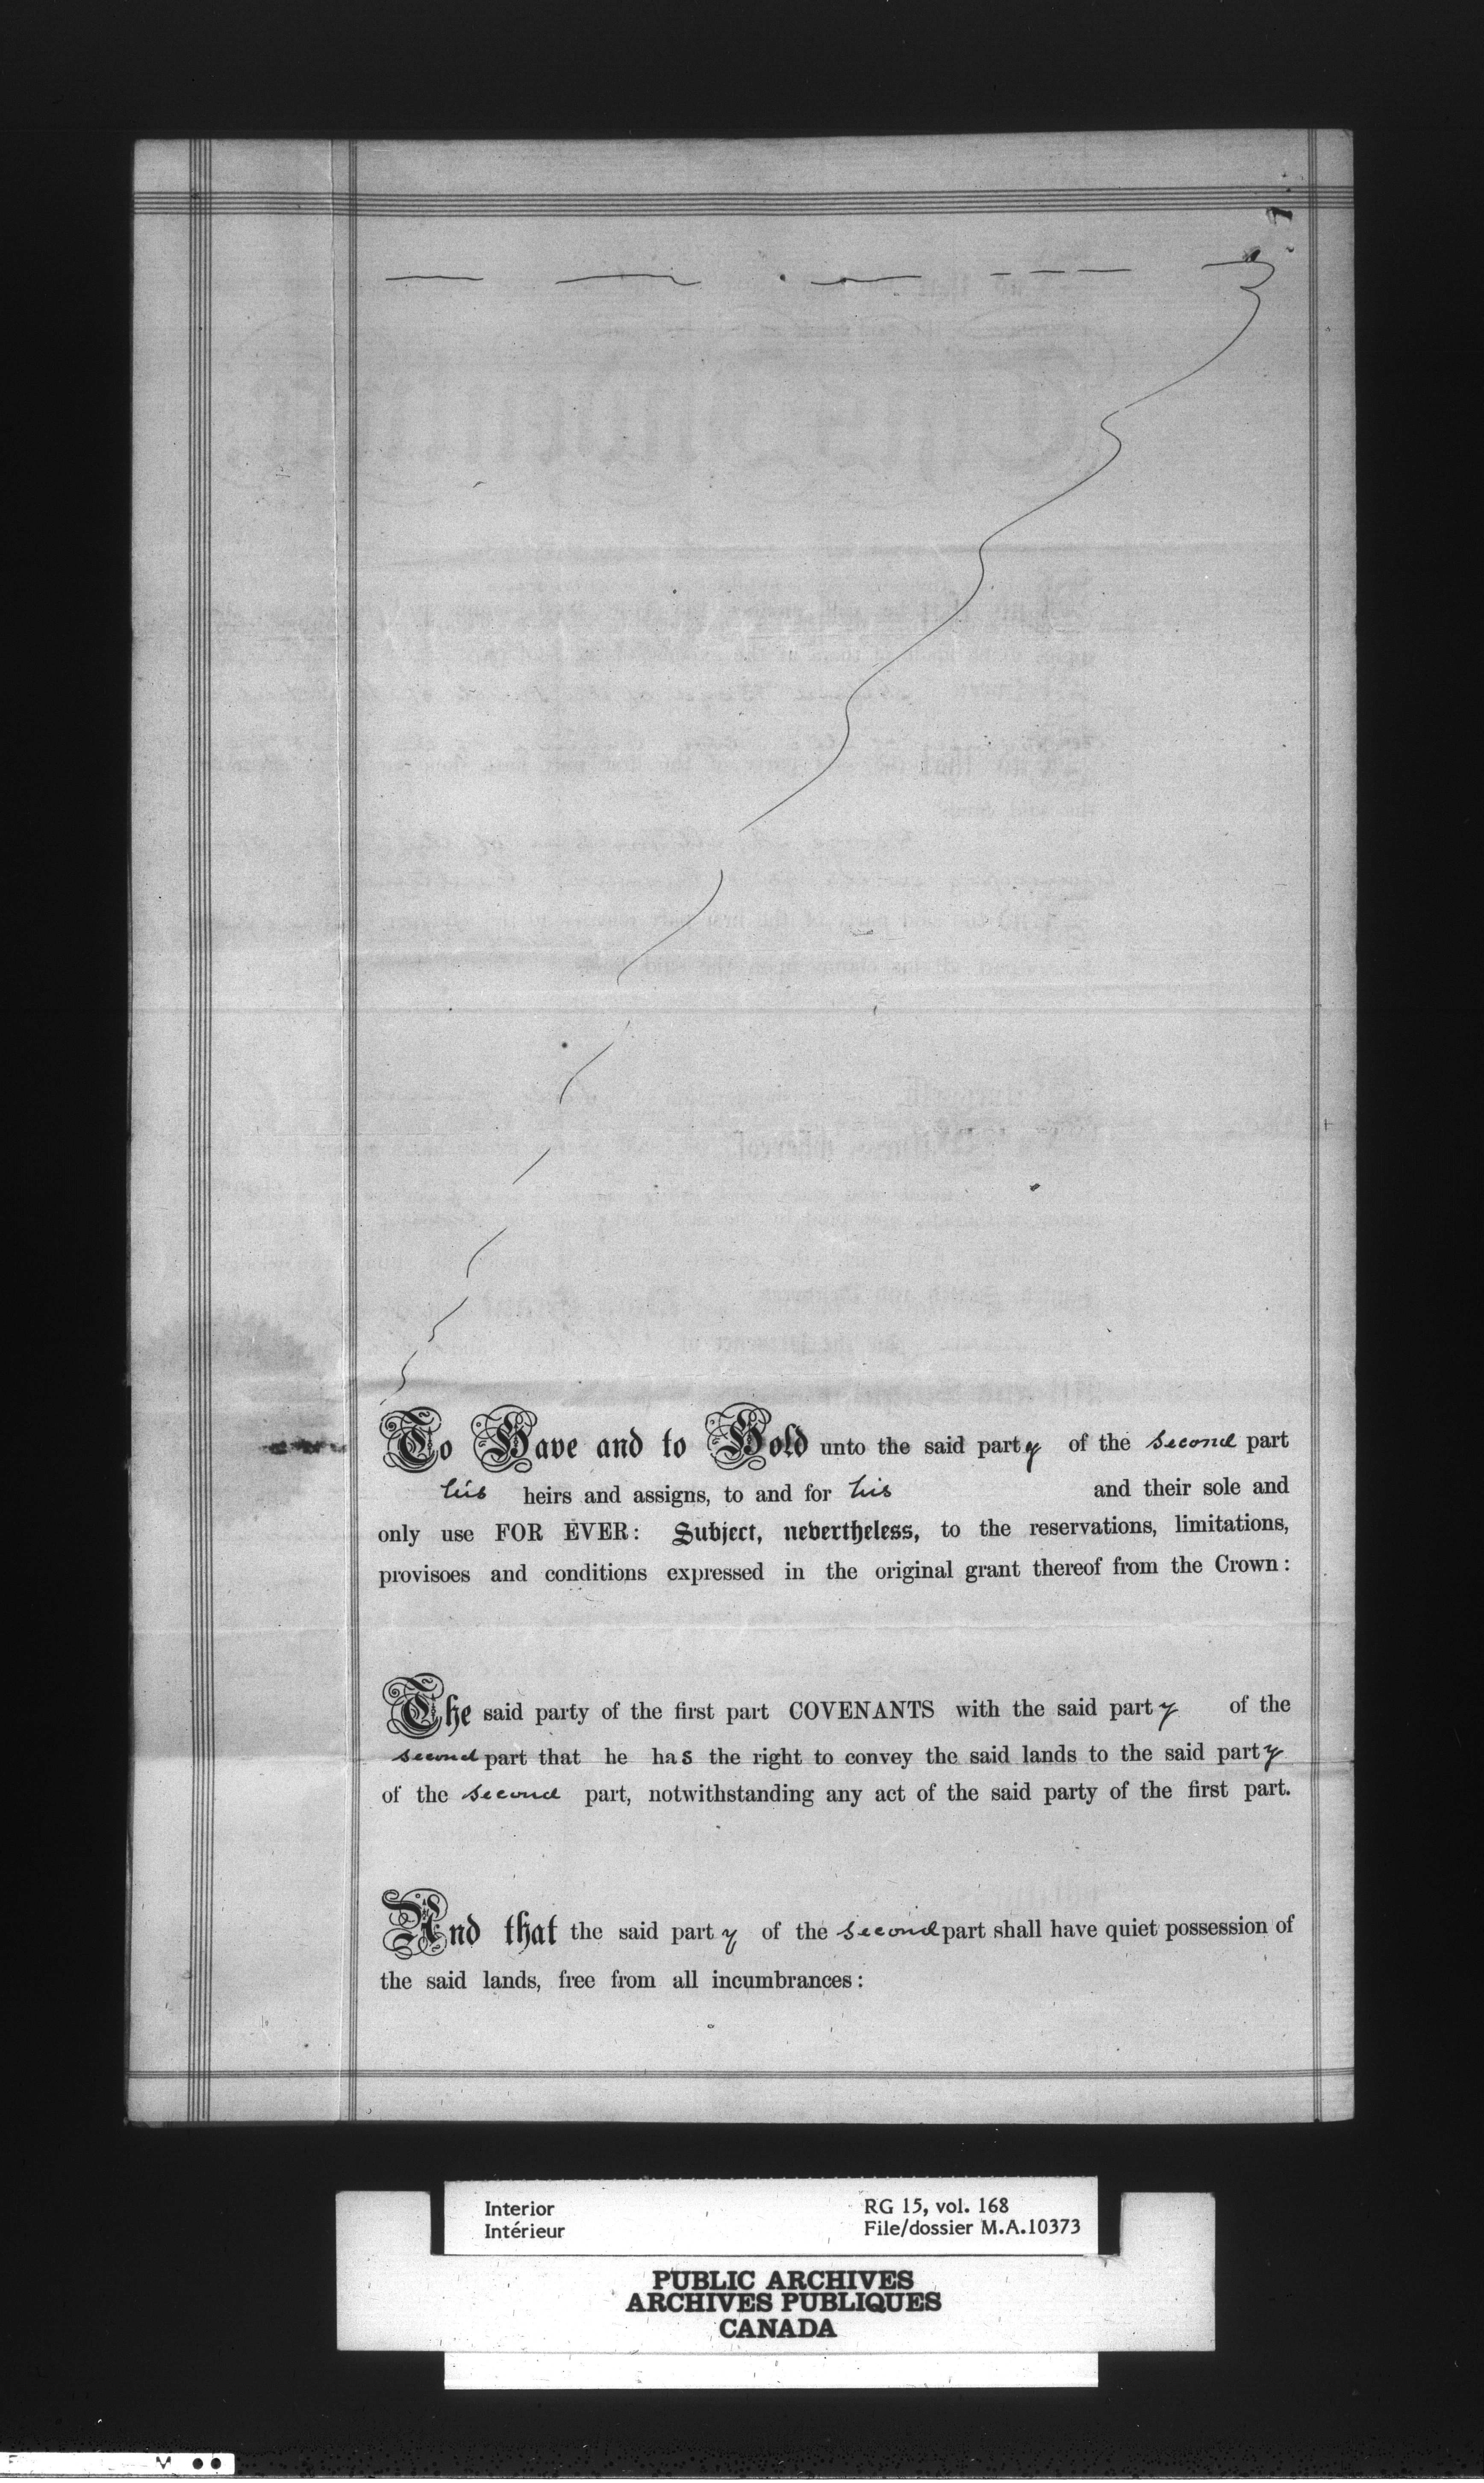 To Have and to Hold unto the said party of the second part
his heirs and assigns, to and for his and their sole and
only use FOR EVER: Subject, nevertheless, to the reservations, limitations,
provisoes and conditions expressed in the original grant thereof from the Crown:
The said party of the first part COVENANTS with the said party of the
second part that he has the right to convey the said lands to the said party
of the second part, notwithstanding any act of the said party of the first part.
And that the said party of the second part shall have quiet possession of
the said lands, free from all incumbrances:
Interior
Intérieur
RG 15, vol. 168
File/dossier M.A.10373
PUBLIC ARCHIVES
ARCHIVES PUBLIQUES
CANADA